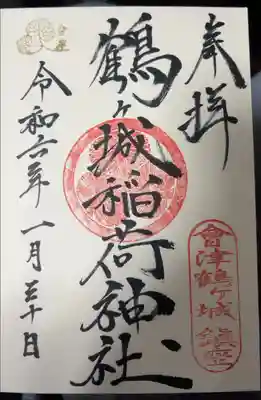 奉拝
會津鶴ヶ城鎮座
鶴ヶ城稲荷神社
令和六年一月三十日